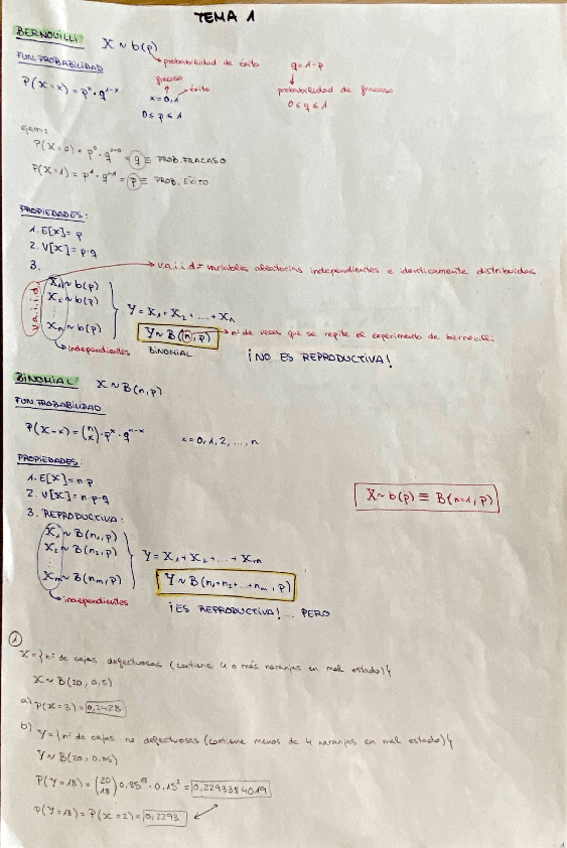 TEMA 1
BERNOUILLI X ~ b(p)
probabilidad de éxito q=1-p
FUN. PROBABILIDAD
fracaso
éxito
probabilidad de fracaso
P(X=x) = p^x · q^1-x x=0,1
0≤p≤1 0≤q≤1
ejem:
P(X=0) = p^0 · q^1-0 = q ≡ PROB. FRACASO
P(X=1) = p^1 · q^1-1 = p ≡ PROB. ÉXITO
PROPIEDADES:
1. E[X] = p
2. V[X] = p·q
3. v.a.i.i.d = variables aleatorias independientes e identicamente distribuidas
v.a.i.i.d
X1 ~ b(p)
X2 ~ b(p)
Xn ~ b(p)
Y = X1 + X2 + ... + Xn
Y ~ B(n,p) nº de veces que se repite el experimento de bernouilli
independientes BINOMIAL ¡NO ES REPRODUCTIVA!
BINOMIAL X ~ B(n,p)
FUN. PROBABILIDAD
P(X=x) = (n x) · p^x · q^n-x x=0,1,2,...,n
PROPIEDADES:
1. E[X] = n·p
2. V[X] = n·p·q
X ~ b(p) ≡ B(n=1, p)
3. REPRODUCTIVA:
X1 ~ B(n1,p)
X2 ~ B(n2,p)
Xm ~ B(nm,p)
Y = X1 + X2 + ... + Xm
Y ~ B(n1+n2+...+nm, p)
independientes
¡ES REPRODUCTIVA! ... PERO
1
X={nº de cajas defectuosas (contiene 4 o más naranjas en mal estado)}
a) P(X=3) = 0,2428
b) Y={nº de cajas no defectuosas (contiene menos de 4 naranjas en mal estado)}
Y ~ B(20, 0.85)
P(Y=18) = (20 18) 0.85^18 · 0.15^2 = 0,2293384019
P(Y=18) = P(X=2) = 0,2293